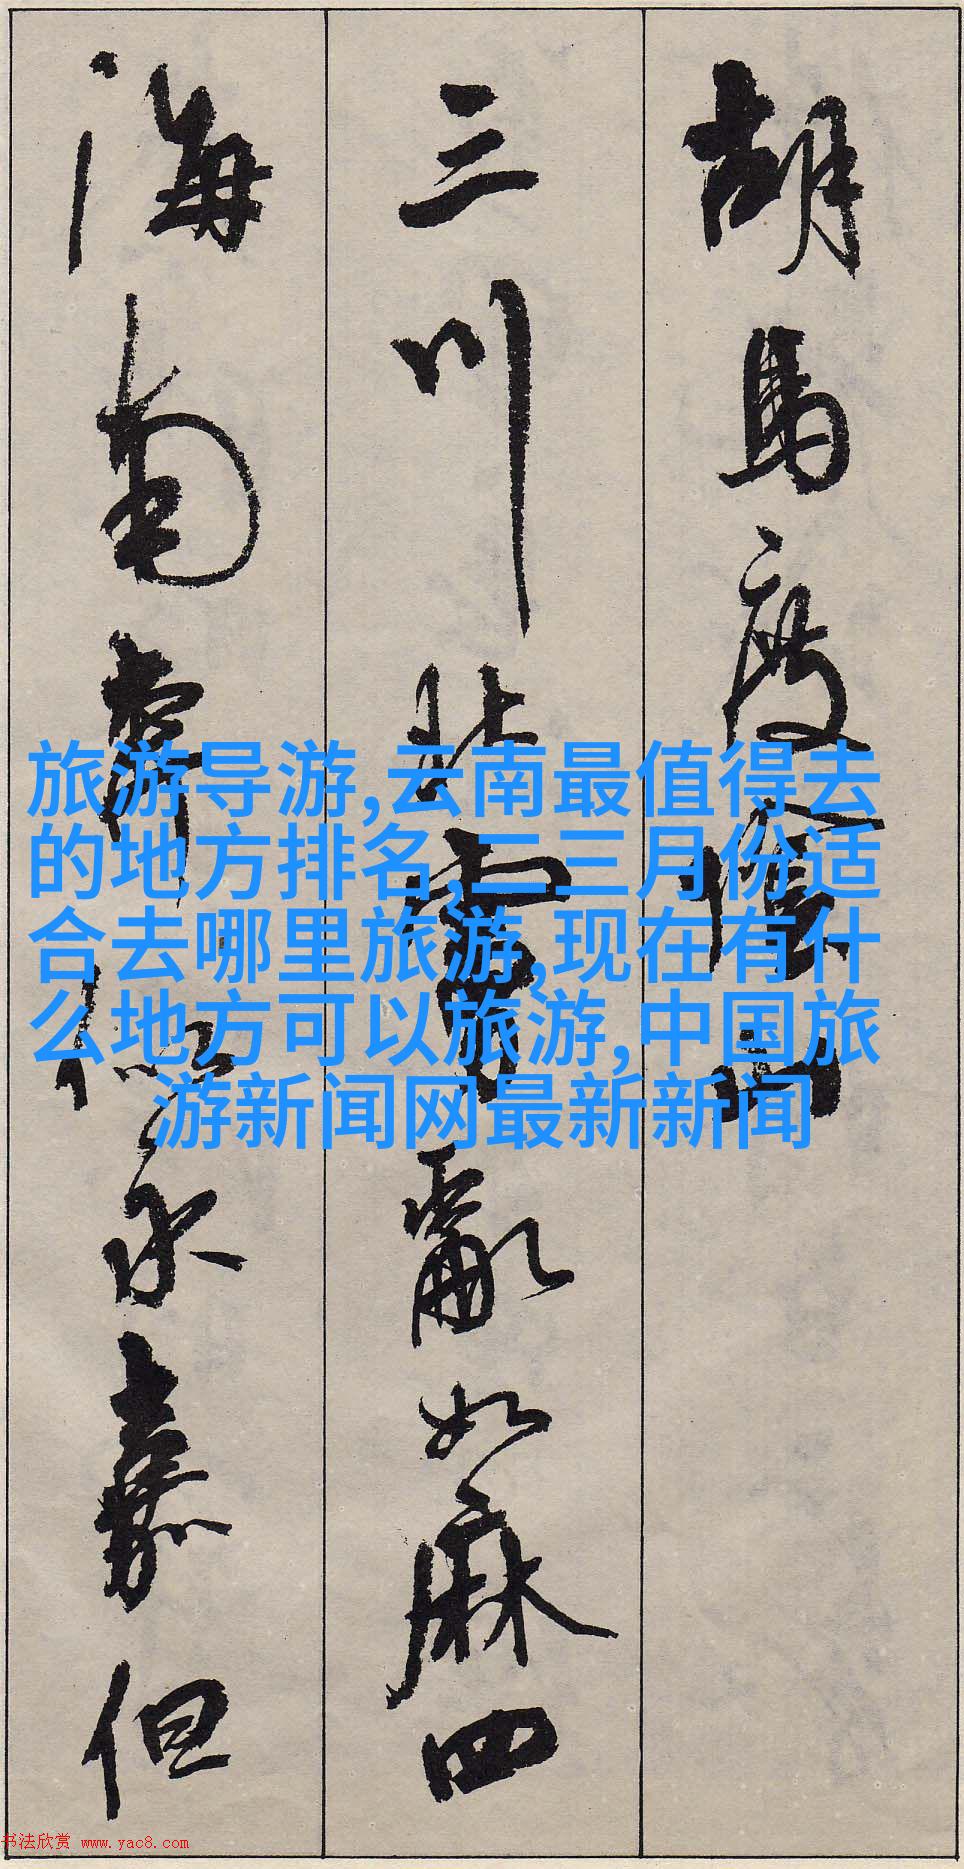 胡馬度陰山
三川北虜亂如麻四
海南奔似永嘉但
旅游导游,云南最值得去
的地方排名,二三月份适
合去哪里旅游,现在有什
么地方可以旅游,中国旅
游新闻网最新新闻
书法欣赏 www.yac8.com